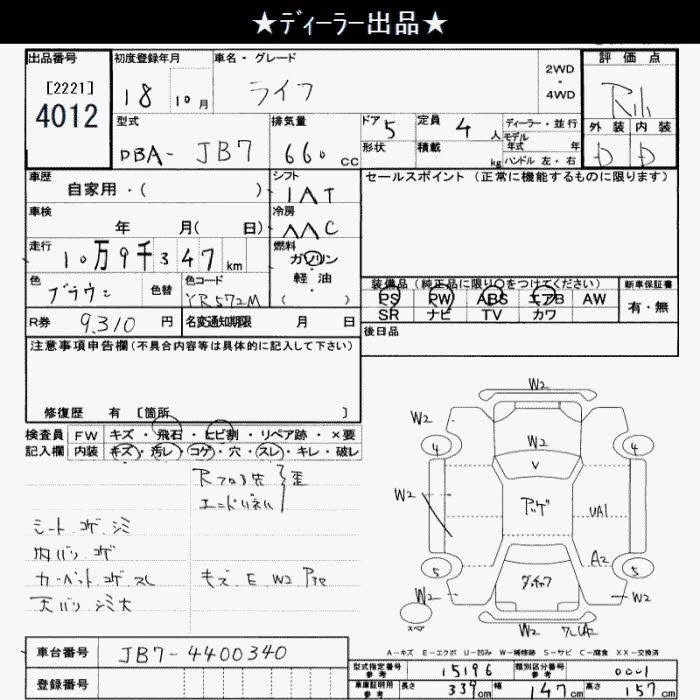 ★ディーラー出品★
出品番号
[2221]
4012
初度登録年月
18 10月
車名・グレード
ライフ
2WD
・
4WD
評価点
外装 内装
D D
型式
DBA- JB7
排気量
660 cc
ドア 5
形状
定員 4 人
積載 kg
ディーラー・並行
モデル
年式 年
ハンドル 左・右
車歴
自家用・( )
シフト
IAT
セールスポイント (正常に機能するものに限ります)
車検
年 月( 日)
冷房
AAC
走行
10万9千347 km
燃料
ガソリン
軽油
( )
色
ブラウン
色替
色コード
YR572M
装備品(純正品に限り○をつけてください)
PS PW ABS エアB AW
SR ナビ TV カワ
新車保証書
有・無
R券 9,310 円
名変通知期限 月 日
後日品
注意事項申告欄(不具合内容等は具体的に記入して下さい)
修復歴 有 [箇所 ]
検査員 FW キズ・飛石・ヒビ割・リペア跡・×要
記入欄 内装 キズ・汚レ・コゲ・穴・スレ・キレ・破レ
シート コゲ シミ
内バリ コゲ
カーペット コゲ スレ
天バリ シミ大
W2
W2
W2
4
4
V
W2
UA1
A2
5
5
W2
W2
スペア
W2
A-キズ E-エクボ U-凹み W-補修跡 S-サビ C-腐食 XX-交換済
車台番号 JB7-4400340
登録番号
型式指定番号
参考
15196
類別区分番号
参考
0001
車庫証明用
参考
長さ 339cm 幅 147cm 高さ 157cm